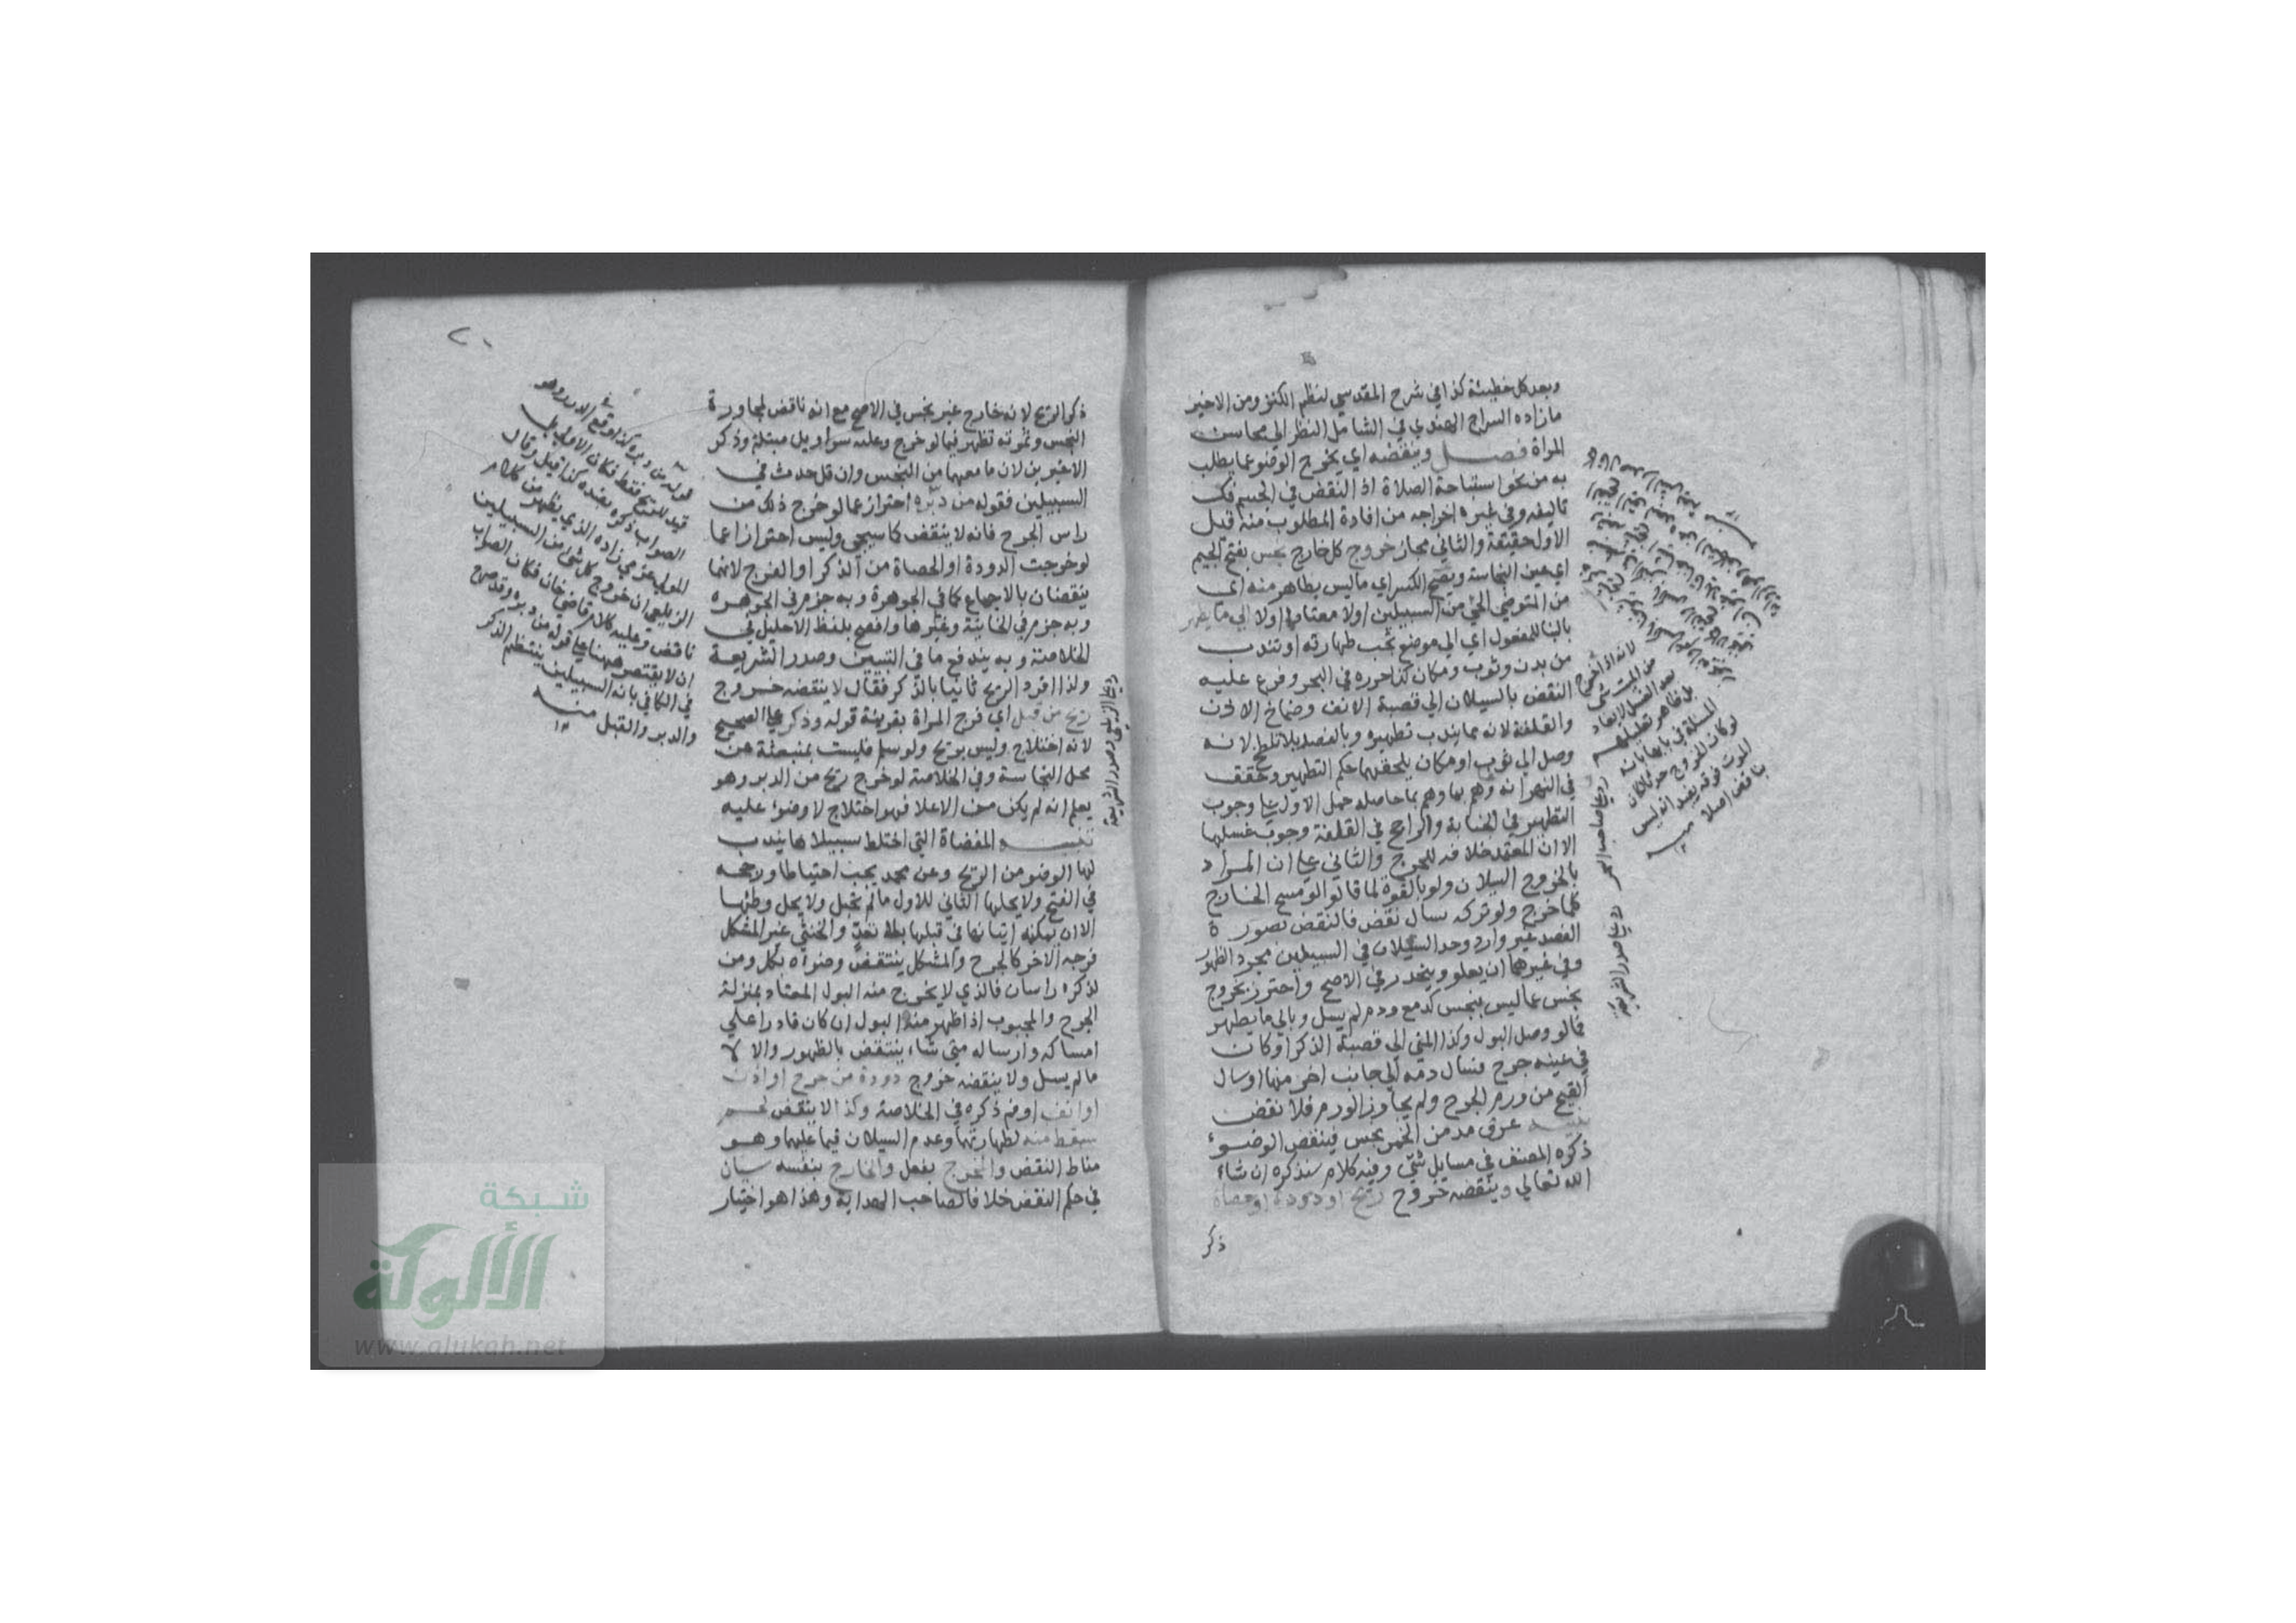 وبعد كل خطيئة كذا في شرح المقدسي لنظم الكنز ومن الاخير
ما زاده السراج الهندي في الشامل النظر الي محاسن
المراة فصل وينقضه اي يخرج الوضو عما يطلب
به من نحو استباحة الصلاة اذ النقض في الجسم فك
تاليفه وفي غيره اخراجه من افادة المطلوب منه قيل
الاول حقيقة والثاني مجاز خروج كل خارج نجس بفتح الجيم
اي عين النجاسة ويصح الكسر اي ما ليس بطاهر منه اي
من المتوضي الحي من السبيلين اولا معتاد اولا الي ما يطهر
بالبنا للمفعول اي الي موضع تجب طهارته او تندب
من بدن وثوب ومكان كذا حرره في البحر وفرع عليه
النقض بالسيلان الي قصبة الانف وصماخ الاذن
والقلفة لانه مما يندب تطهيره وبالفصد بلا تلطخ لانه
وصل الي ثوب او مكان يلحقهما حكم التطهير وحقق
في النهر انه وهم بما وهم بما حاصله حمل الاول علي وجوب
التطهير في الجنابة والراجح في القلفة وجوب غسلها
الا ان المعتمد خلافه للحرج والثاني علي ان المراد
بالخروج السيلان ولو بالقوة لما قالوا لو مسح الخارج
كلما خرج ولو تركه سال نقض فالنقض بصورة
الفصد غير وارد وحد السيلان في السبيلين مجرد الظهور
وفي غيرهما ان يعلو وينحدر في الاصح واحترز بخروج
نجس عما ليس بنجس كدمع ودم لم يسل وبالي ما يطهر
عما لو وصل البول وكذا المني الي قصبة الذكر او كان
في عينه جرح فسال دمه الي جانب اخر منها او سال
القيح من ورم الجرح ولم يجاوز الورم فلا نقض
تنبيه عرق مدمن الخمر نجس فينقض الوضوء
ذكره المصنف في مسايل شتي وفيه كلام سنذكره ان شاء
الله تعالي وينقضه خروج ريح او دودة او حصاة
ذكر
لانه اذا خرج
من الميت شي
بعد الغسل لا يعاد
بل ظاهر تعليلهم
المسئلة في بابها بانه
لو كان الخروج حدثا لكان
الموت فوقه يفيد انه ليس
بناقض اصلا منه
رد علي صاحب البحر
رد علي صدر الشريعة
ذكر الريح لانه خارج غير نجس في الاصح مع انه ناقض لمجاورة
النجس وثمرته تظهر فيما لو خرج وعليه سراويل مبتلة وذكر
الاخيرين لان ما معهما من النجس وان قل حدث في
السبيلين فقوله من دبره احتراز عما لو خرج ذلك من
راس الجرح فانه لا ينقض كما سيجي وليس احترازا عما
لو خرجت الدودة او الحصاة من الذكر او الفرج لانهما
ينقضان بالاجماع كما في الجوهرة وبه جزم في الجوهره
وبه جزم في الخانية وغيرها وافصح بلفظ الاحليل في
الخلاصة وبه يندفع ما في التبيين وصدر الشريعة
ولذا افرد الريح ثانيا بالذكر فقال لا ينقضه خروج
ريح من قبل اي فرج المراة بقرينة قوله وذكر علي الصحيح
لانه اختلاج وليس بريح ولو سلم فليست بمنبعثة عن
محل النجاسة وفي الخلاصة لو خرج ريح من الدبر وهو
يعلم انه لم يكن من الاعلا فهو اختلاج لا وضوء عليه
تنبيه المفضاة التي اختلط سبيلاها يندب
لها الوضو من الريح وعن محمد يجب احتياطا ورجحه
في الفتح ولا يحلها الثاني للاول ما لم تحبل ولا يحل وطئها
الا ان يمكنه اتيانها في قبلها بلا تعد والخنثي غير المشكل
فرجه الاخر كالجرح والمشكل ينتقض وضوءه بكل ومن
لذكره راسان فالذي لا يخرج منه البول المعتاد بمنزلة
الجرح والمجبوب اذا ظهر منه البول ان كان قادرا علي
امساكه وارساله متي شاء ينتقض بالظهور والا لا
ما لم يسل ولا ينقضه خروج دودة من جرح او اذن
او انف او فم ذكره في الخلاصة وكذا لا ينقض لحم
سقط منه لطهارتها وعدم السيلان فيما عليهما وهو
مناط النقض والمخرج بفعل والخارج بنفسه سيان
في حكم النقض خلافا لصاحب الهداية وهذا هو اختيار
رد علي الزيلعي وصدر الشريعة
قوله من دبره كذا وقع في الدرر وهو
قيد للريح فقط فكان الاولي بل
الصواب ذكره بعده كذا قيل وقال
المولي عزمي زاده الذي يظهر من كلام
الزيلعي ان خروج كل شي من السبيلين
ناقض وعليه كلام قاضي خان فكان الصواب
ان لا يقتصر ههنا علي قوله من دبره وقد صرح
في الكافي بانه السبيلين ينتظم الذكر
والدبر والقبل منه
١٢